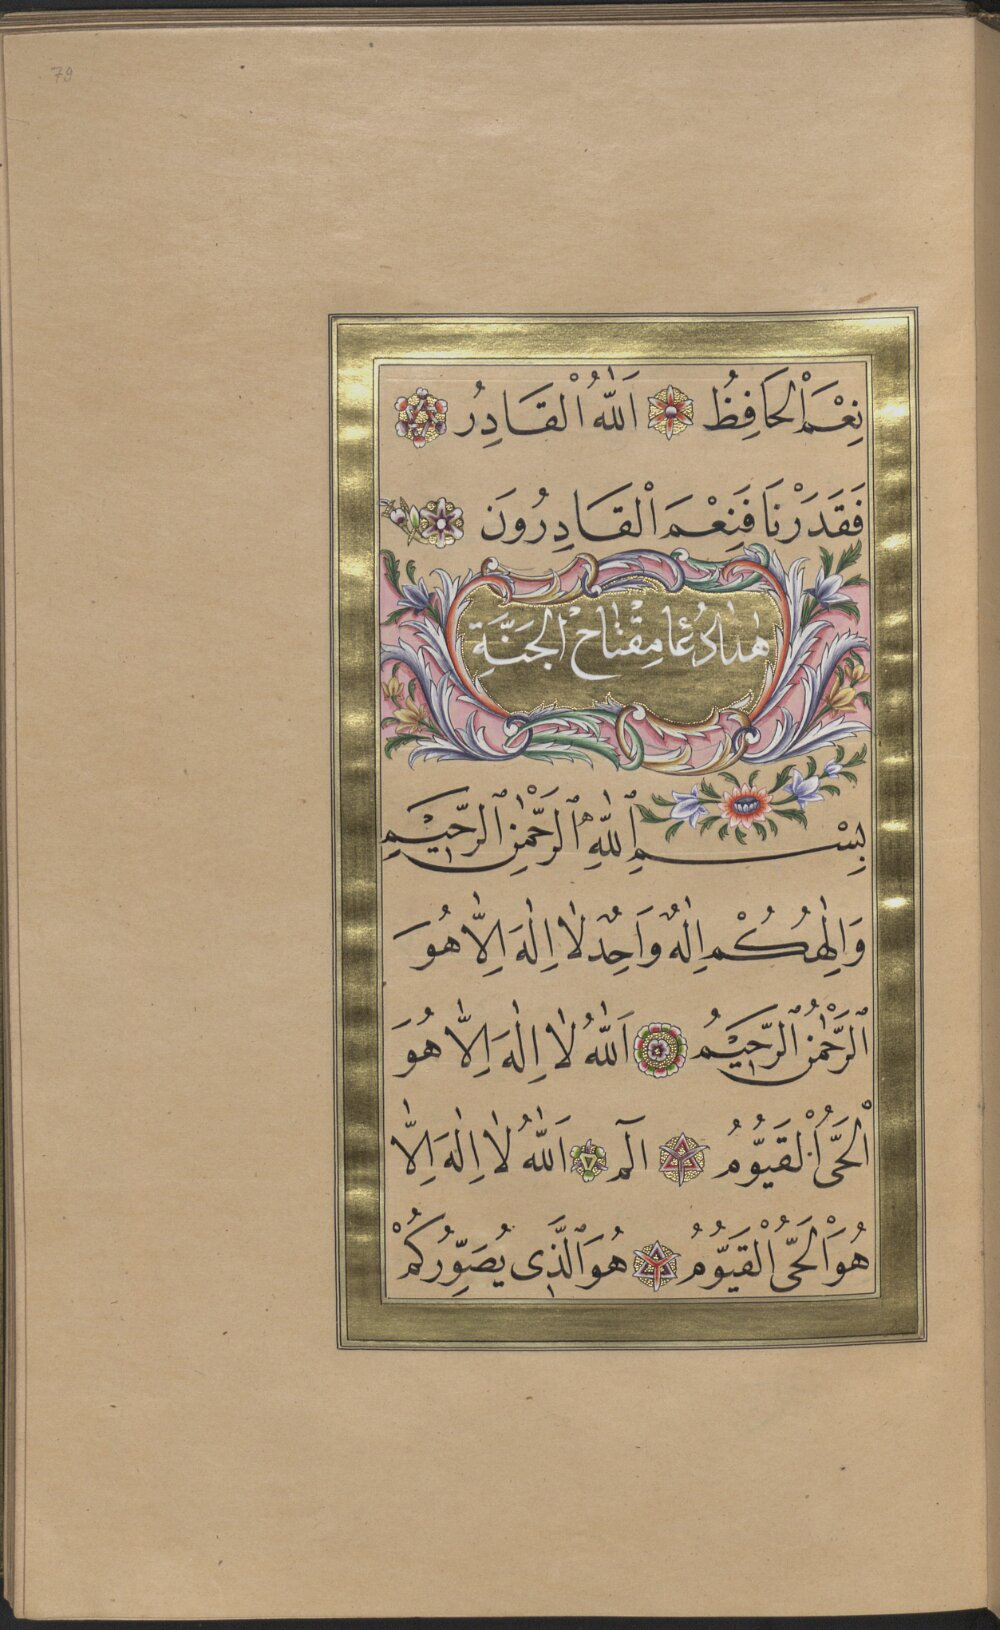 79
نِعْمَ الْحَافِظُ اَللّٰهُ الْقَادِرُ
فَقَدَرْنَا فَنِعْمَ الْقَادِرُونَ
هٰذَا دُعَا مِفْتَاحْ الْجَنَّةِ
بِسْمِ اللّٰهِ الرَّحْمٰنِ الرَّحِيمِ
وَاِلٰهُكُمْ اِلٰهٌ وَاحِدٌ لَا اِلٰهَ اِلَّا هُوَ
الرَّحْمٰنُ الرَّحِيمُ اَللّٰهُ لَا اِلٰهَ اِلَّا هُوَ
اَلْحَىُّ الْقَيُّومُ الٓمٓ اَللّٰهُ لَا اِلٰهَ اِلَّا
هُوَ الْحَىُّ الْقَيُّومُ هُوَ الَّذِى يُصَوِّرُكُمْ